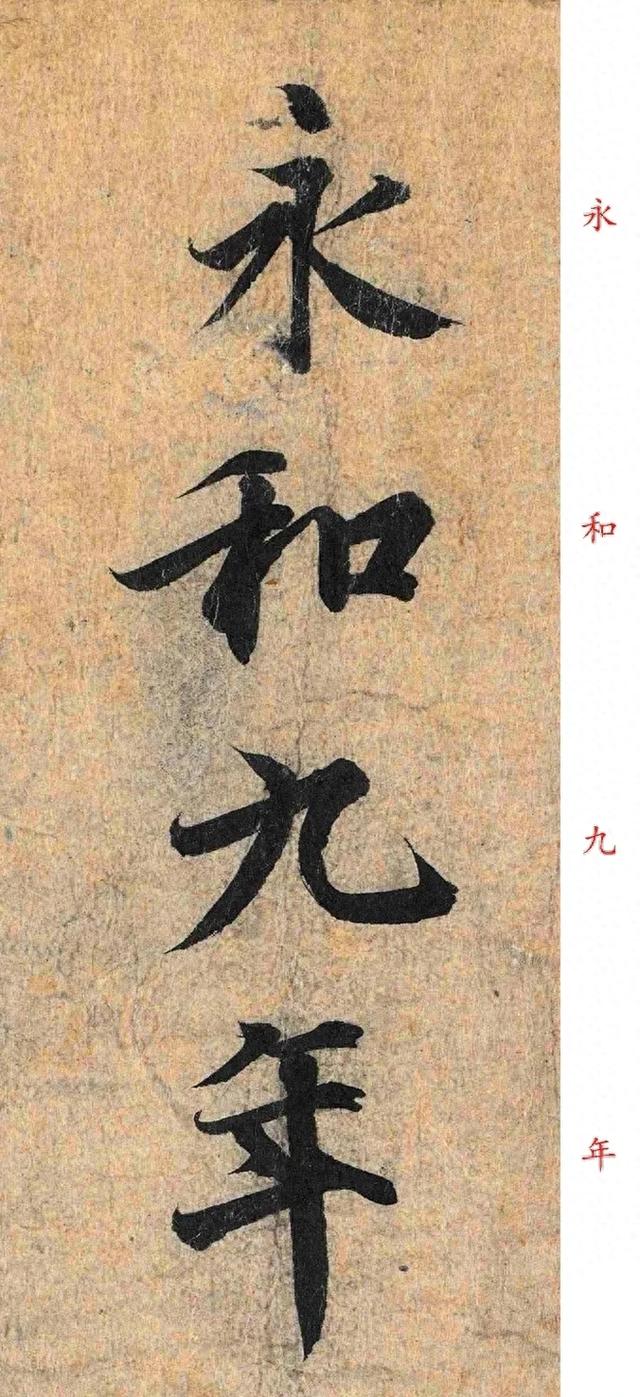 永和九年
永
和
九
年